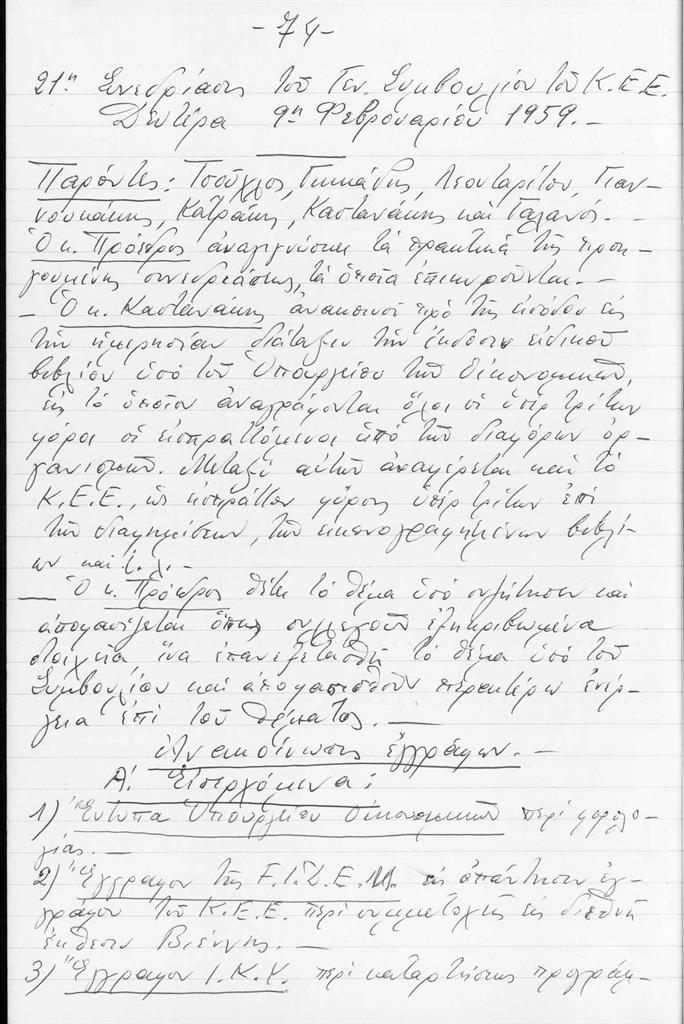 -74-
21η Συνεδρίασις τοῦ Γεν. Συμβουλίου τοῦ Κ.Ε.Ε.
Δευτέρα 9η Φεβρουαρίου 1959.-
Παρόντες: Τσοῦχλος, Γιοκαδης, Λεονταρίτου, Γιαν-
νουκάκης, Κατράκης, Καστανάκης καὶ Γαλανός.-
Ὁ κ. Πρόεδρος ἀναγιγνώσκει τὰ πρακτικὰ τῆς προη-
γουμένης συνεδριάσεως, τὰ ὁποῖα ἐπικυροῦνται.-
- Ὁ κ. Καστανάκης ἀνακοινοῖ πρὸ τῆς εἰσόδου εἰς
τὴν ἡμερησίαν διάταξιν τὴν ἔκδοσιν εἰδικοῦ
βιβλίου ὑπὸ τοῦ Ὑπουργείου τῶν Οἰκονομικῶν,
εἰς τὸ ὁποῖον ἀναγράφονται ὅλοι οἱ ὑπὲρ τρίτων
φόροι οἱ εἰσπραττόμενοι ὑπὸ τῶν διαφόρων ὀρ-
γανισμῶν. Μεταξὺ αὐτῶν ἀναφέρεται καὶ τὸ
Κ.Ε.Ε., ὡς εἰσπράττον φόρους ὑπὲρ τρίτων ἐπὶ
τῶν διαφημίσεων, τῶν εἰκονογραφημένων βιβλί-
ων καὶ λ.-
- Ὁ κ. Πρόεδρος θέτει τὸ θέμα ὑπὸ συζήτησιν καὶ
ἀποφασίζεται ὅπως συλλεγοῦν ἐξηκριβωμένα
στοιχεῖα, ἵνα ἐπανεξετασθῇ τὸ θέμα ὑπὸ τοῦ
Συμβουλίου καὶ ἀποφασισθοῦν περαιτέρω ἐνέρ-
γεια ἐπὶ τοῦ θέματος.-
Ἀνακοίνωσις ἐγγράφων.-
Α'. Εἰσερχόμενα:
1) Ἔντυπα Ὑπουργείου Οἰκονομικῶν περὶ φορολο-
γίας.-
2) Ἔγγραφον τῆς F.I.D.E.M. εἰς ἀπάντησιν ἐγ-
γράφου τοῦ Κ.Ε.Ε. περὶ συμμετοχῆς εἰς διεθνῆ
ἔκθεσιν Βιέννης.-
3) Ἔγγραφον Ι.Κ.Υ. περὶ καταρτίσεως προγράμ-